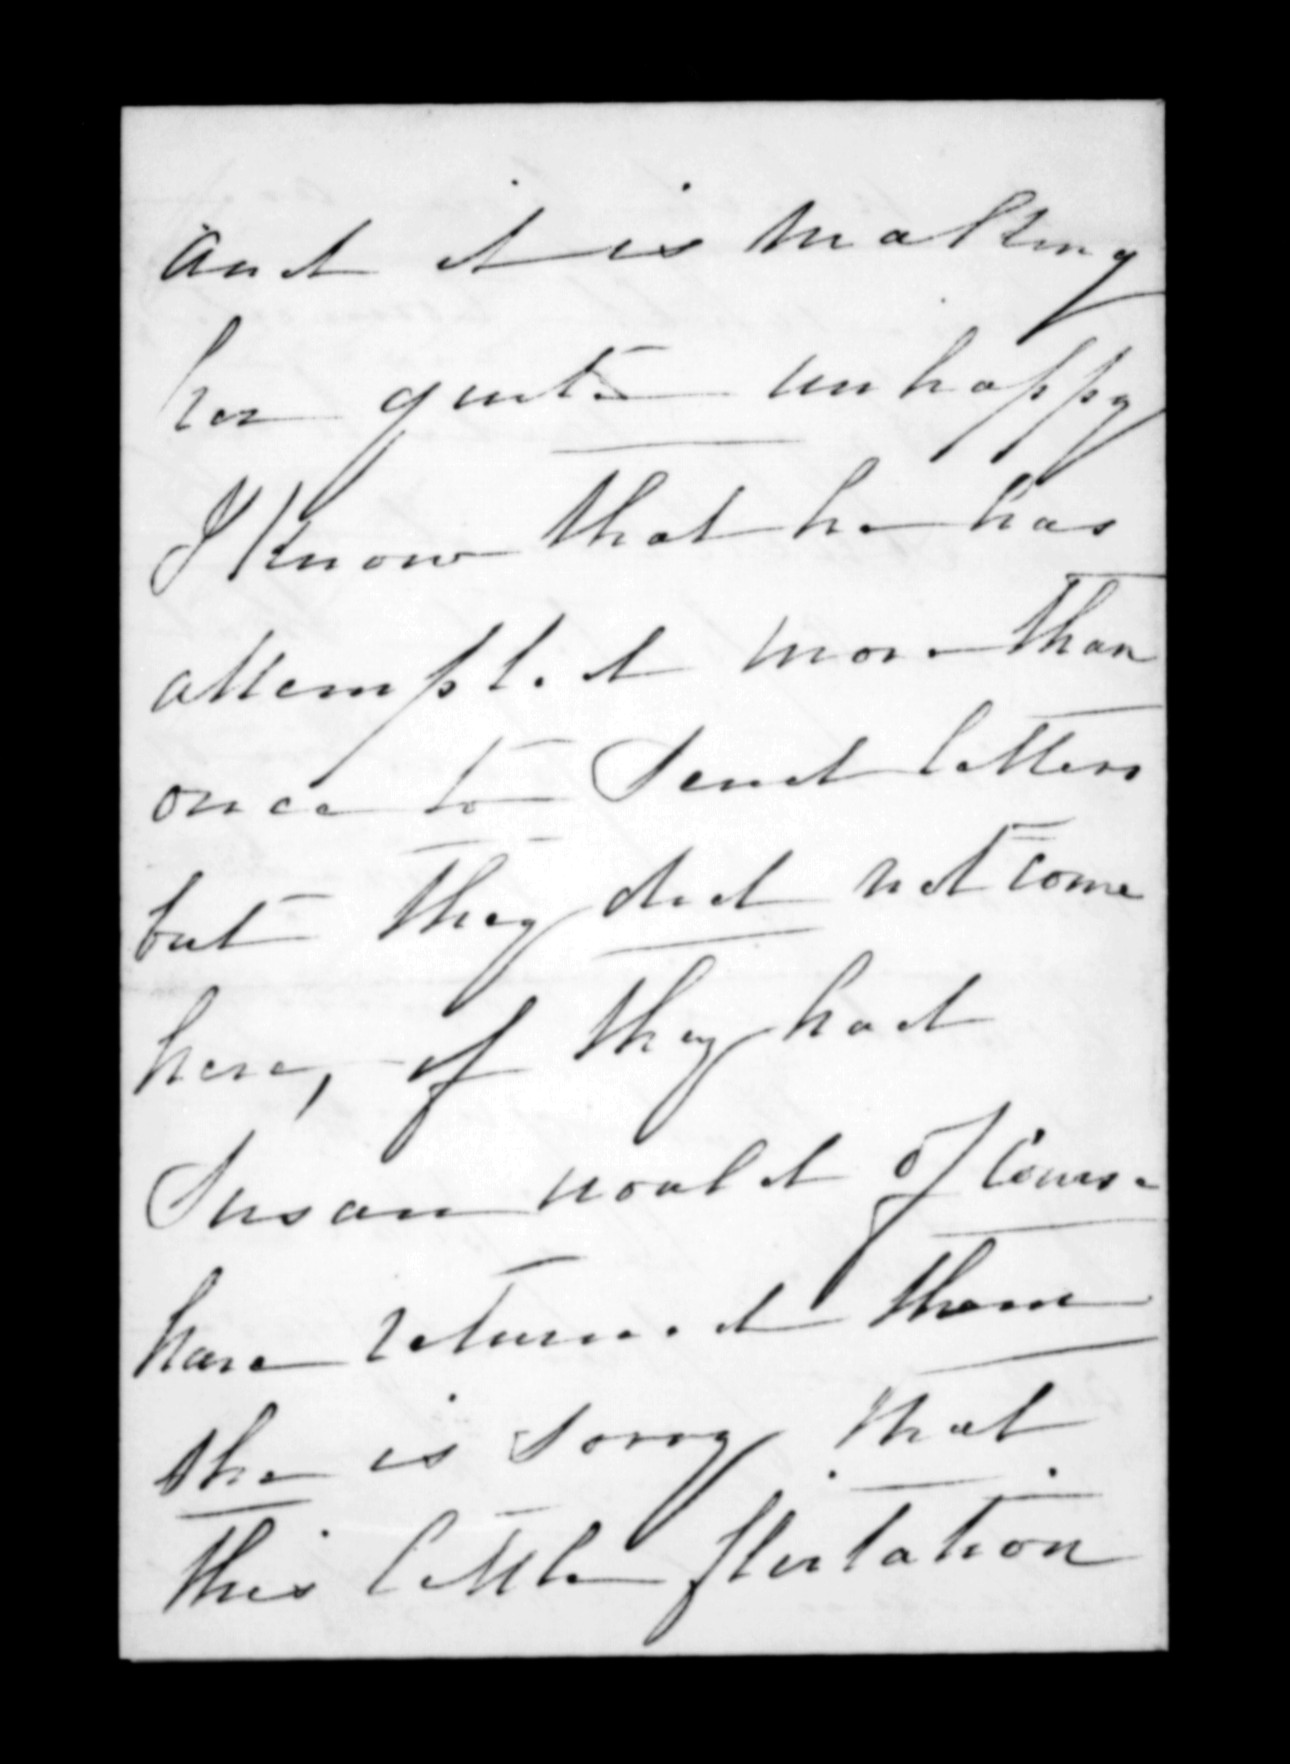 and it is making
her quite unhappy
I know that he has
attempted more than
once to send letters
but they did not come
here, if they had
Susan would of course
have returned them
she is sorry that
this little flirtation